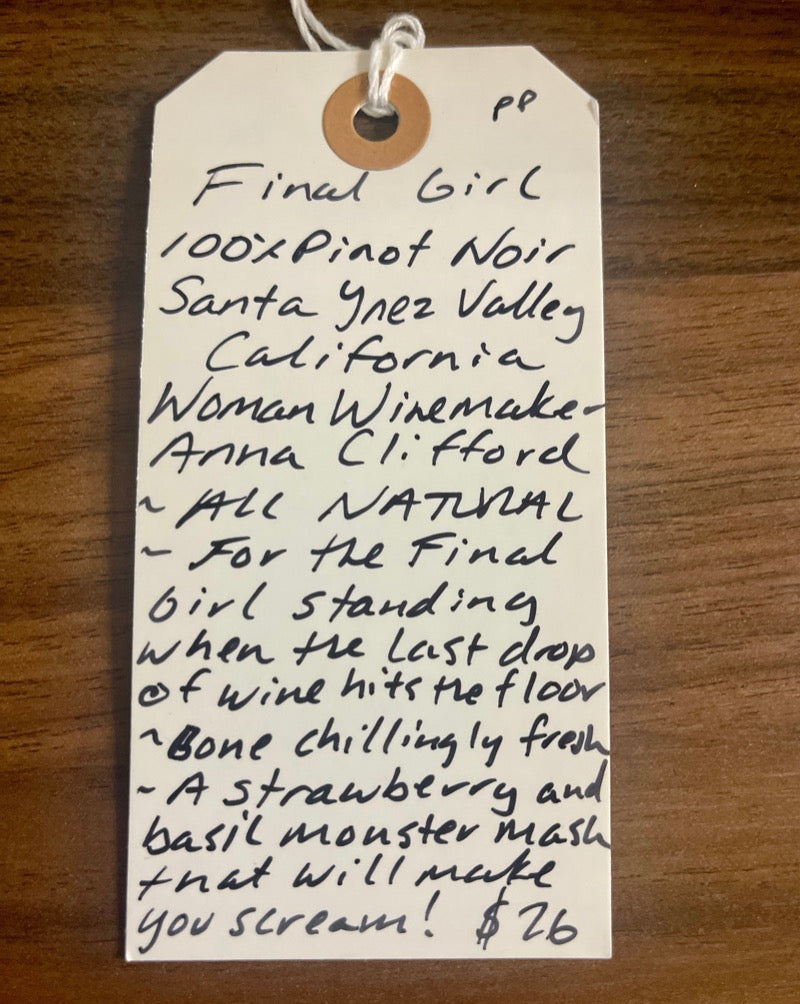 PP
Final Girl
100% Pinot Noir
Santa Ynez Valley
California
Woman Winemaker
Anna Clifford
~ ALL NATURAL
~ For the Final
Girl standing
when the last drop
of wine hits the floor
~ Bone chillingly fresh
~ A strawberry and
basil monster mash
that will make
you scream! $26